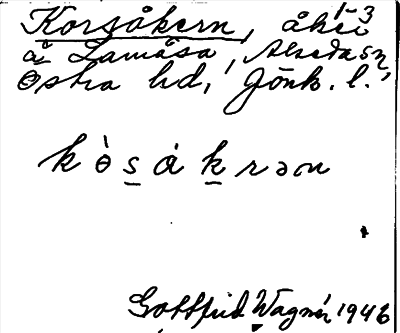 1-3
Korsåkern, åker
å Lamåsa, Alseda sn,
Östra hd, Jönk. l.
k ò̵ s̲ á k̲ r ə n
Gottfrid Wagnér 1946